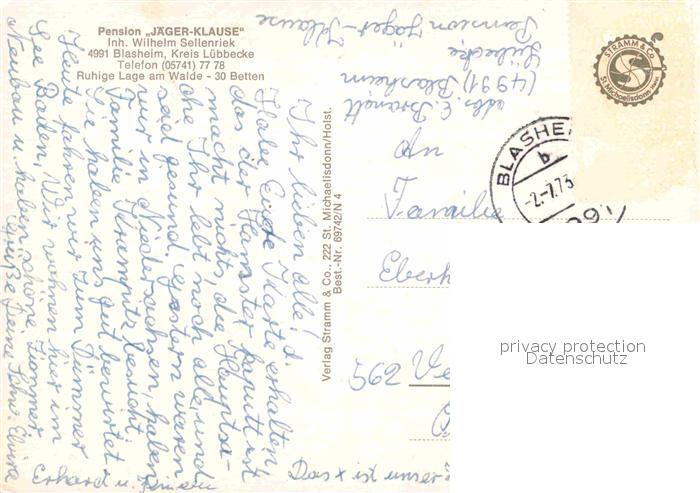 Pension „JÄGER-KLAUSE"
Inh. Wilhelm Sellenriek
4991 Blasheim, Kreis Lübbecke
Telefon (05741) 77 78
Ruhige Lage am Walde - 30 Betten
Ihr lieben alle! d.
Habe Eure Karte erhalten,
das der Hamster kaputt ist
macht nichts, die Hauptsa-
che Ihr lebt noch alle, und
seid gesund. Gestern waren
wir in Niedersachsen, haben
Familie besucht.
Sie haben uns gut bewirtet.
Heute fahren wir zum Dümmer
See Baden, Wir wohnen hier im
Neubau u. haben schöne Zimmer
Grüße Deine
Erhard u.
Verlag Stramm & Co., 222 St. Michaelisdonn/Holst.
Best.-Nr. 69742/N 4
Abs. E. Brandt
(4991) Blasheim
Lübecke
Pension Jäger-Klause
STRAMM & CO.
St. Michaelisdonn
BLASHEI
b
-2.-7.73
An
Familie
Eberh
562 Ve
Das x ist
privacy protection
Datenschutz